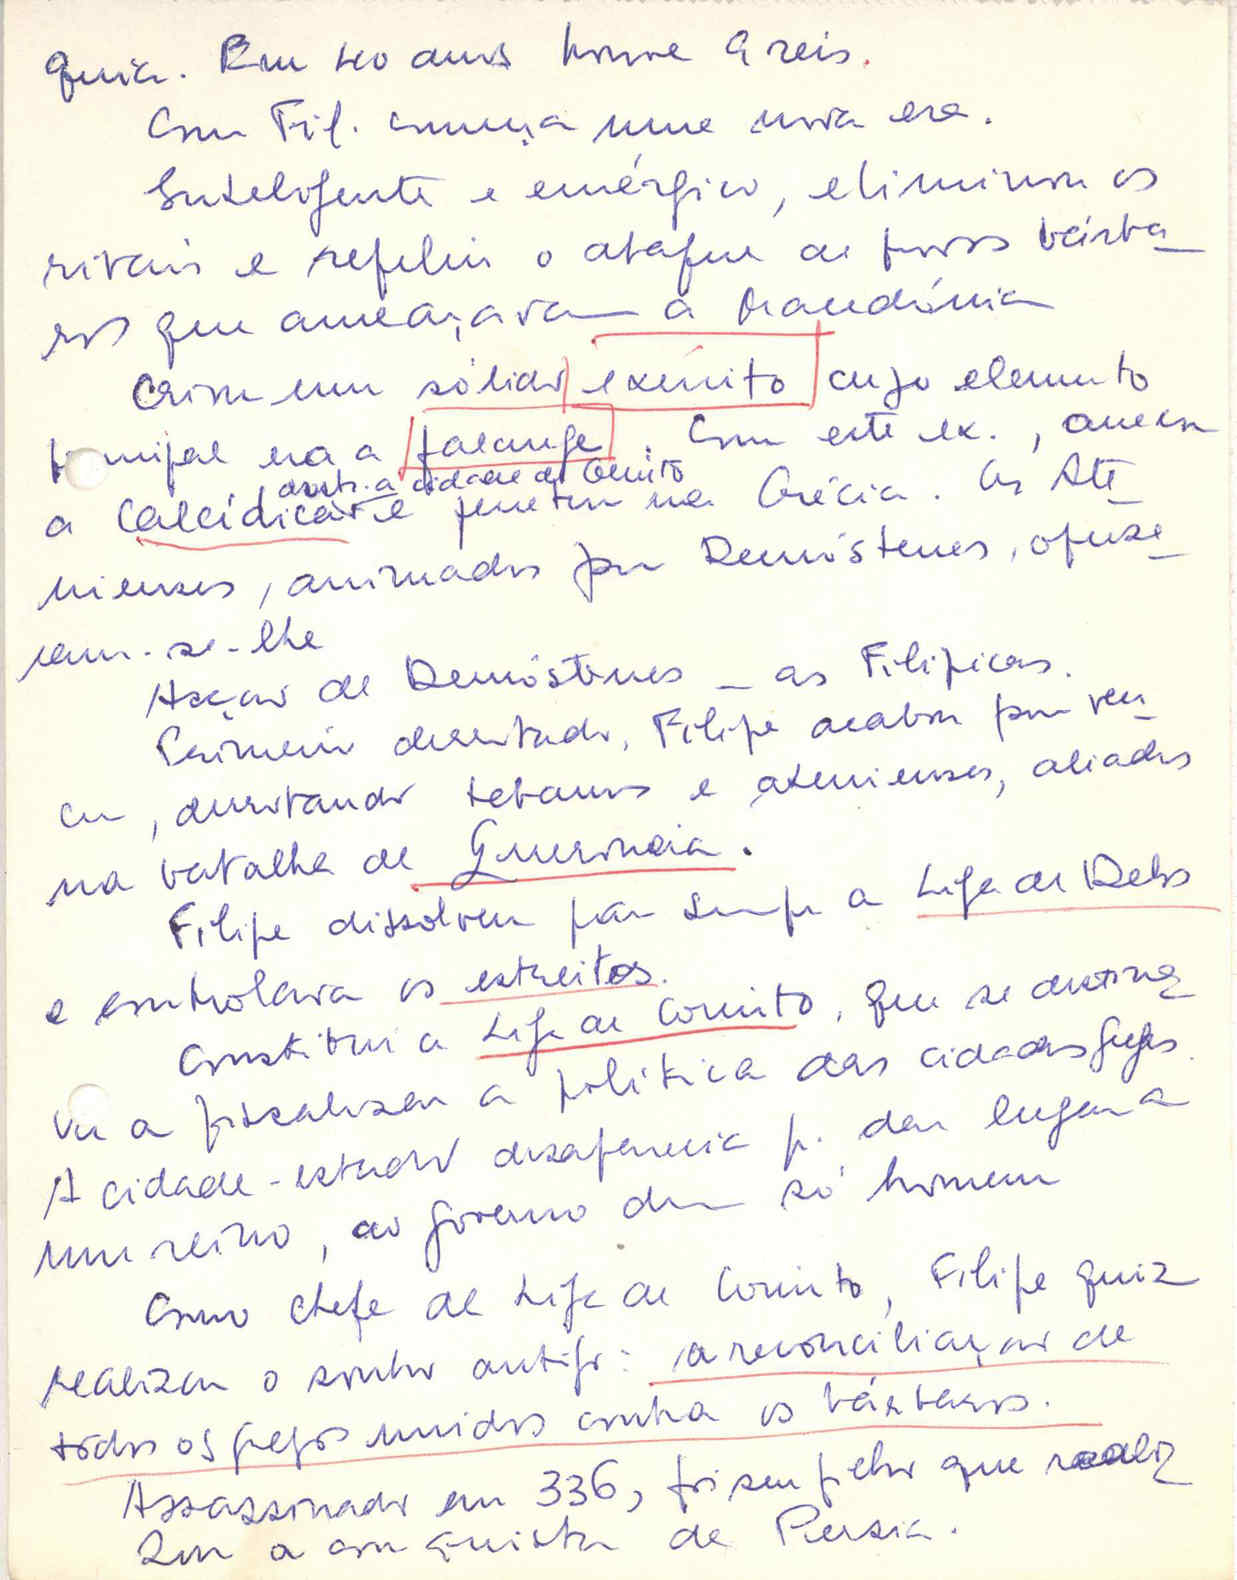 quia. Em 40 anos houve 9 reis.
Com Fil. começa uma nova era.
Inteligente e enérgico, eliminou os
rivais e repeliu o ataque de povos bárba-
ros que ameaçavam a Macedónia
Criou um sólido exército cujo elemento
principal era a falange. Com este ex., anexou
destr. a cidade de Olinto
a Calcídica e penetrou na Grécia. Os Ate-
nienses, animados por Demóstenes, opuse-
ram-se-lhe
Acção de Demóstenes - as Filípicas.
Primeiro derrotado, Filipe acabou por ven-
cer, derrotando tebanos e atenienses, aliados
na batalha de Queroneia.
Filipe dissolveu para sempre a Liga de Delos
e controlava os estreitos.
Constitui a Liga de Corinto, que se destina-
va a fiscalizar a política das cidades gregas.
A cidade-estado desaparecia p. dar lugar a
um reino, ao governo dum só homem
Como chefe de Liga de Corinto, Filipe quiz
realizar o sonho antigo: a reconciliação de
todos os gregos unidos contra os bárbaros.
Assassinado em 336, foi seu filho que realiz
zou a conquista da Pérsia.